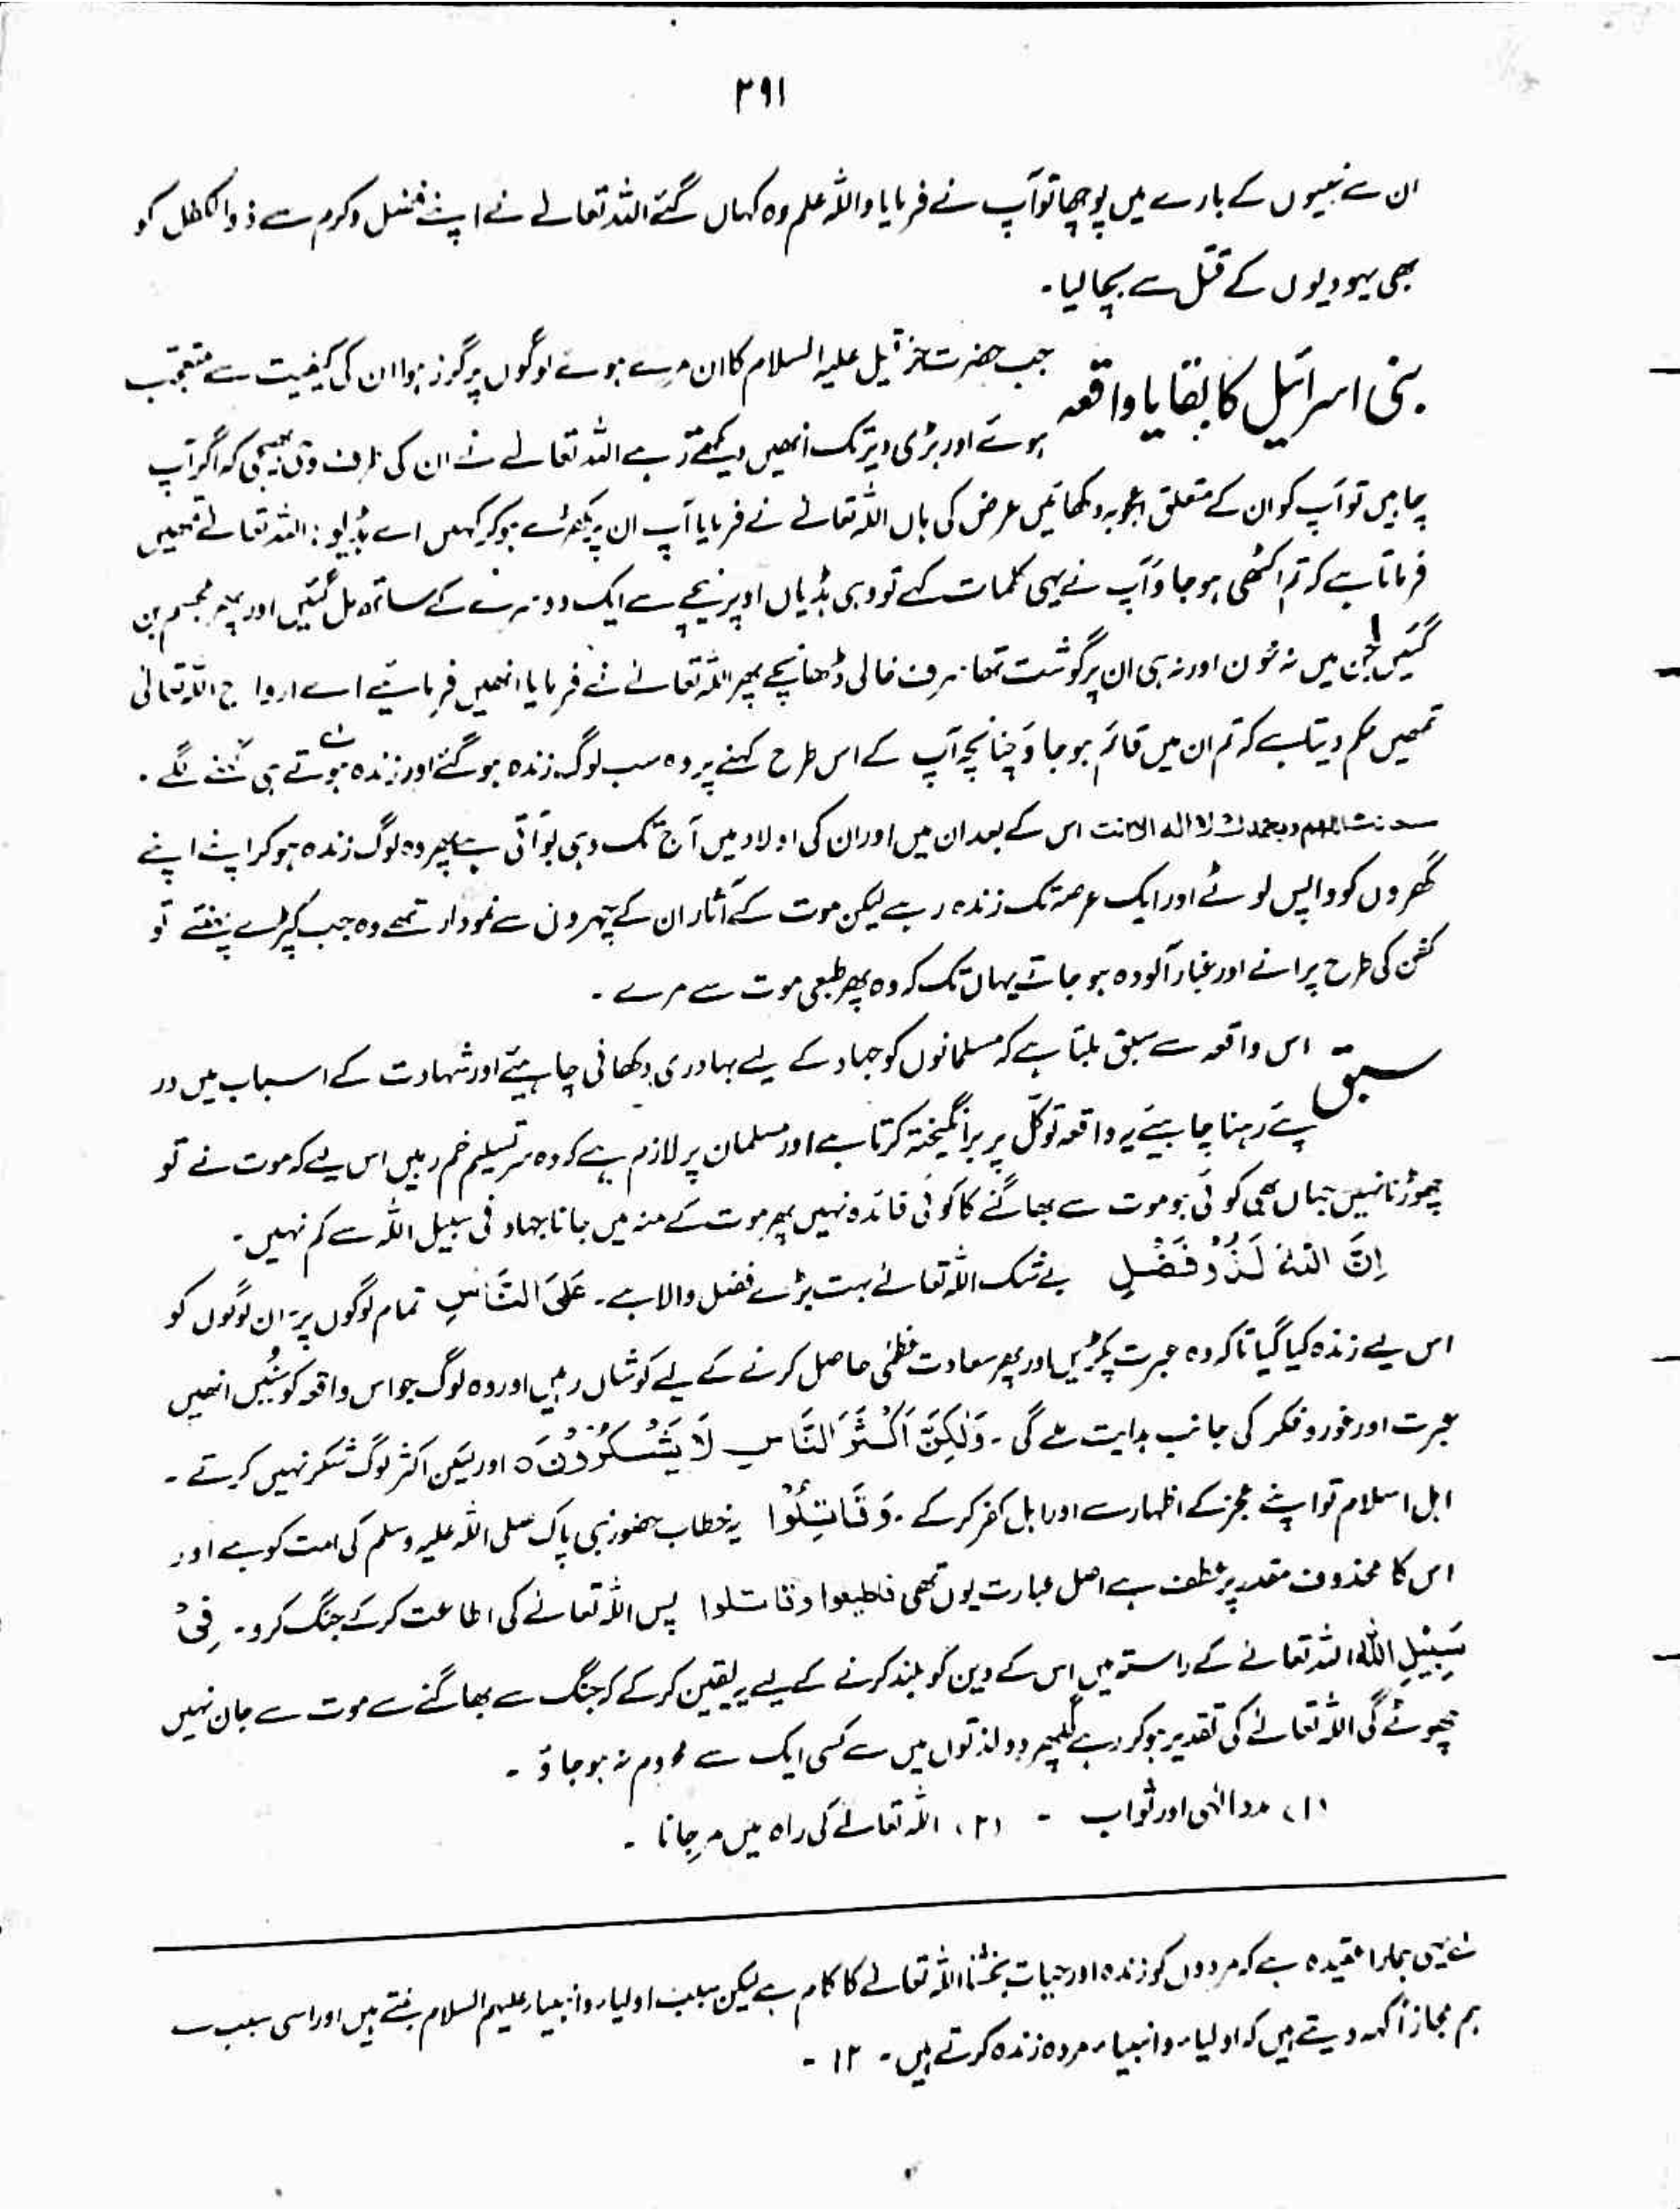 ۳۹۱
ان سے نبیوں کے بارے میں پوچھا تو آپ نے فرمایا واللہ علم وہ کہاں گئے اللہ تعالےٰ نے اپنے فضل و کرم سے ذوالکفل کو
بھی یہودیوں کے قتل سے بچا لیا۔
بنی اسرائیل کا بقایا واقعہ
جب حضرت حزقیل علیہ السلام کا ان مرے ہوئے لوگوں پر گزر ہوا ان کی کیفیت سے متعجب
ہوئے اور بڑی دیر تک انھیں دیکھتے رہے اللہ تعالےٰ نے ان کی طرف وحی بھیجی کہ اگر آپ
چاہیں تو آپ کو ان کے متعلق اعجوبہ دکھائیں عرض کی ہاں اللہ تعالےٰ نے فرمایا آپ ان پر کھڑے ہو کر کہیں اے ہڈیو: اللہ تعالےٰ تمھیں
فرماتا ہے کہ تم اکٹھی ہو جاؤ آپ نے یہی کلمات کہے تو وہی ہڈیاں اوپر نیچے سے ایک دوسرے کے ساتھ مل گئیں اور پھر مجسم بن
گئیں جن میں نہ خون اور نہ ہی ان پر گوشت تھا صرف خالی ڈھانچے پھر اللہ تعالےٰ نے فرمایا انھیں فرمائیے اے ارواح اللہ تعالیٰ
تمھیں حکم دیتا ہے کہ تم ان میں قائم ہو جاؤ چنانچہ آپ کے اس طرح کہنے پر وہ سب لوگ زندہ ہو گئے اور زندہ ہوتے ہی کہنے لگے۔
اللھم وبحمدك لا اله الا انت اس کے بعد ان میں اور ان کی اولاد میں آج تک وہی بو آتی ہے پھر وہ لوگ زندہ ہو کر اپنے اپنے
گھروں کو واپس لوٹے اور ایک عرصہ تک زندہ رہے لیکن موت کے آثار ان کے چہروں سے نمودار تھے وہ جب کپڑے پہنتے تو
کفن کی طرح پرانے اور غبار آلودہ ہو جاتے یہاں تک کہ وہ پھر طبعی موت سے مرے۔
سبق اس واقعہ سے سبق ملتا ہے کہ مسلمانوں کو جہاد کے لیے بہادری دکھانی چاہیئے اور شہادت کے اسباب میں در
پے رہنا چاہیئے یہ واقعہ توکل پر برانگیختہ کرتا ہے اور مسلمان پر لازم ہے کہ وہ سر تسلیم خم رہیں اس لیے کہ موت نے تو
چھوڑنا نہیں جہاں بھی کوئی ہو موت سے بھاگنے کا کوئی فائدہ نہیں پھر موت کے منہ میں جانا جہاد فی سبیل اللہ سے کم نہیں۔
اِنَّ اللّٰهَ لَذُوْ فَضْلٍ بے شک اللہ تعالےٰ بہت بڑے فضل والا ہے۔ عَلَی النَّاسِ تمام لوگوں پر۔ ان لوگوں کو
اس لیے زندہ کیا گیا تاکہ وہ عبرت پکڑیں اور پھر سعادت عظمٰی حاصل کرنے کے لیے کوشاں رہیں اور وہ لوگ جو اس واقعہ کو سنیں انھیں
عبرت اور غور و فکر کی جانب ہدایت ملے گی۔ وَلٰکِنَّ اَکْثَرَ النَّاسِ لَا یَشْکُرُوْنَ ہ اور لیکن اکثر لوگ شکر نہیں کرتے۔
اہل اسلام تو اپنے عجز کے اظہار سے اور اہل کفر کرکے۔ وَقَاتِلُوْا یہ خطاب حضور نبی پاک صلی اللہ علیہ وسلم کی امت کو ہے اور
اس کا محذوف مقدر پر عطف ہے اصل عبارت یوں تھی فاطیعوا وقاتلوا پس اللہ تعالےٰ کی اطاعت کرکے جنگ کرو۔ فِیْ
سَبِیْلِ اللّٰهِ اللہ تعالےٰ کے راستہ میں اس کے دین کو بلند کرنے کے لیے یہ یقین کرکے کہ جنگ سے بھاگنے سے موت سے جان نہیں
چھوٹے گی اللہ تعالےٰ کی تقدیر ہو کر رہے گی پھر دو لذتوں میں سے کسی ایک سے محروم نہ ہو جاؤ۔
(۱) مدد الٰہی اور ثواب - (۲) اللہ تعالےٰ کی راہ میں مر جانا۔
یہی ہمارا عقیدہ ہے کہ مردوں کو زندہ اور حیات بخشنا اللہ تعالےٰ کا کام ہے لیکن سبب اولیاء و انبیاء علیہم السلام بنتے ہیں اور اسی سبب سے
ہم مجازاً کہہ دیتے ہیں کہ اولیاء و انبیاء مردہ زندہ کرتے ہیں۔ ۱۲۔